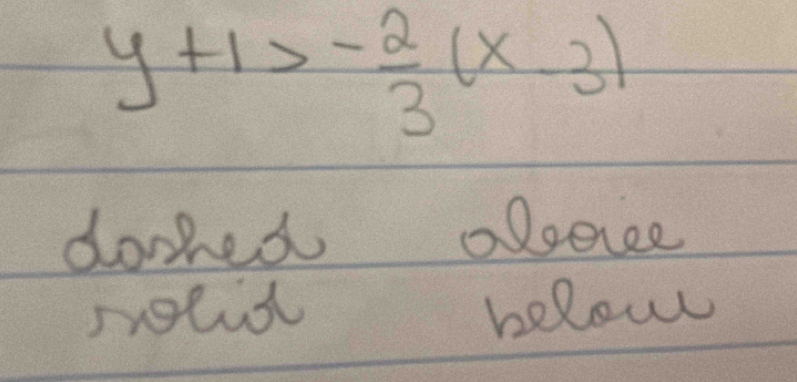 y + 1 > -2/3 (x - 3)
dashed above
solid below